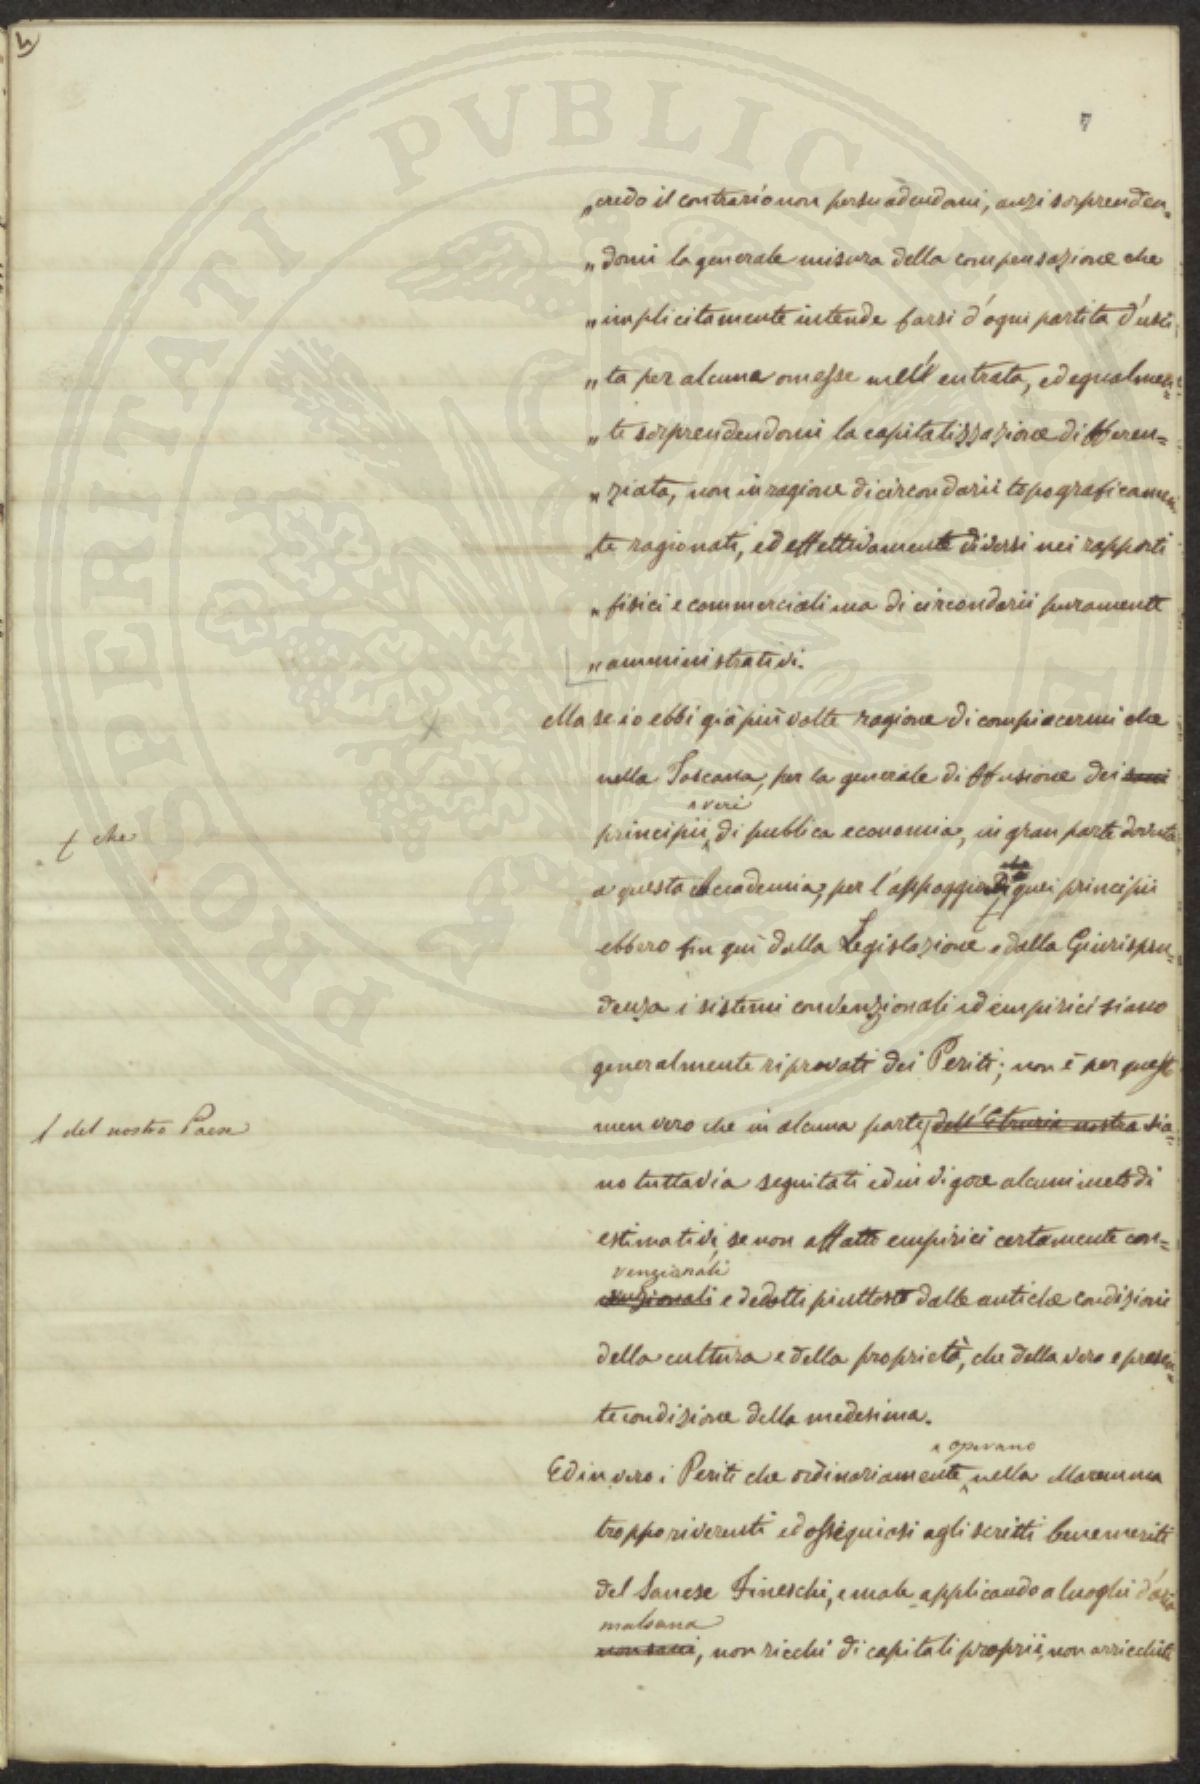 4
7
PROSPERITATI PVBLICAE AVGENDAE
„ credo il contrario non persuadendomi, anzi sorprenden„
„ domi la generale misura della compensazione che
„ implicitamente intende farsi d'ogni partita d'usci
„ ta per alcuna omesse nell'entrata, ed egualmen=
„ te sorprendendomi la capitalizzazione differen=
„ ziata, non in ragione di circondarii topograficamen
„ te ragionati, ed effettivamente diversi nei rapporti
„ fisici e commerciali ma di circondarii puramente
„ amministrativi.
Ma se io ebbi già più volte ragione di compiacermi che
nella Toscana, per la generale diffusione dei sani
veri
principii di publica economia, in gran parte dovuta
che
a questa Accademia, per l'appoggio quei principii
ebbero fin quì dalla Legislazione e dalla Giurispru=
denza i sistemi convenzionali ed empirici siano
generalmente riprovati dei Periti; non è per questo
del nostro Paese
men vero che in alcuna parte dell'Etruria nostra sia=
no tuttavia seguitati ed in vigore alcuni metodi
estimativi, se non affatto empirici certamente con=
venzionali
venzionali e dedotti piuttosto dalle antiche condizioni
della cultura e della proprietà, che della vera e presen=
te condizione della medesima.
operano
Ed in vero i Periti che ordinariamente nella Maremma
troppo riverenti ed ossequiosi agli scritti benemeriti
del Sanese Fineschi, e male applicando a luoghi d'aria
malsana
non sani, non ricchi di capitali proprii, non arricchiti